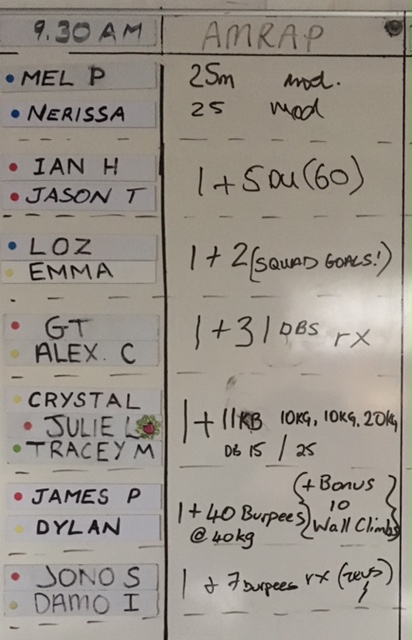 9.30 AM AMRAP
MEL P 25m mod.
NERISSA 25 mod
IAN H
1 + 5 DU (60)
JASON T
LOZ
1 + 2 (SQUAD GOALS!)
EMMA
GT
1 + 31 DBS rx
ALEX. C
CRYSTAL
JULIE L 1 + 11KB 10KG, 10KG, 20KG
TRACEY M DB 15 / 25
(+ Bonus
JAMES P 10
1 + 40 Burpees Wall Climbs
DYLAN @ 40kg
JONO S
1 + 7 burpees rx
DAMO I